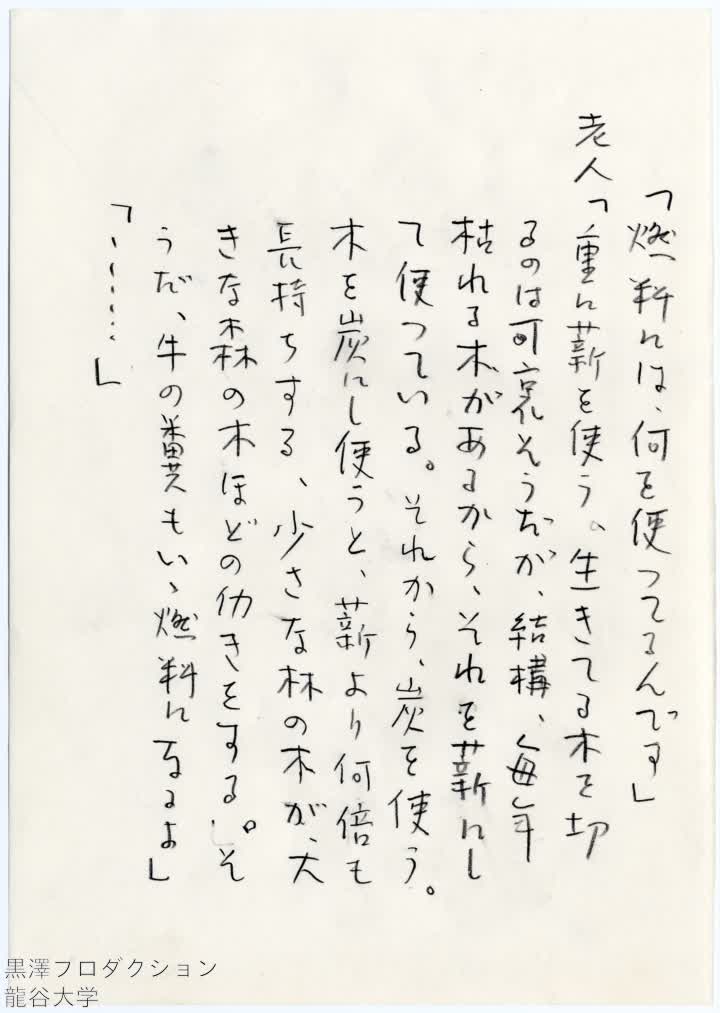 「燃料には、何を使ってるんです」
老人「重に薪を使う。生きてる木を切
るのは可哀そうだが、結構、毎年
枯れる木があるから、それを薪にし
て使っている。それから、炭を使う。
木を炭にし使うと、薪より何倍も
長持ちする、少さな林の木が、大
きな森の木ほどの仂きをする。そ
うだ、牛の糞もいゝ燃料になるよ」
「・・・・・・」
黒澤プロダクション
龍谷大学